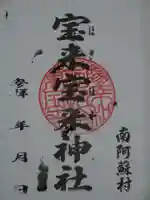 宝来宝来神社
南阿蘇村
参拝
年 月 日